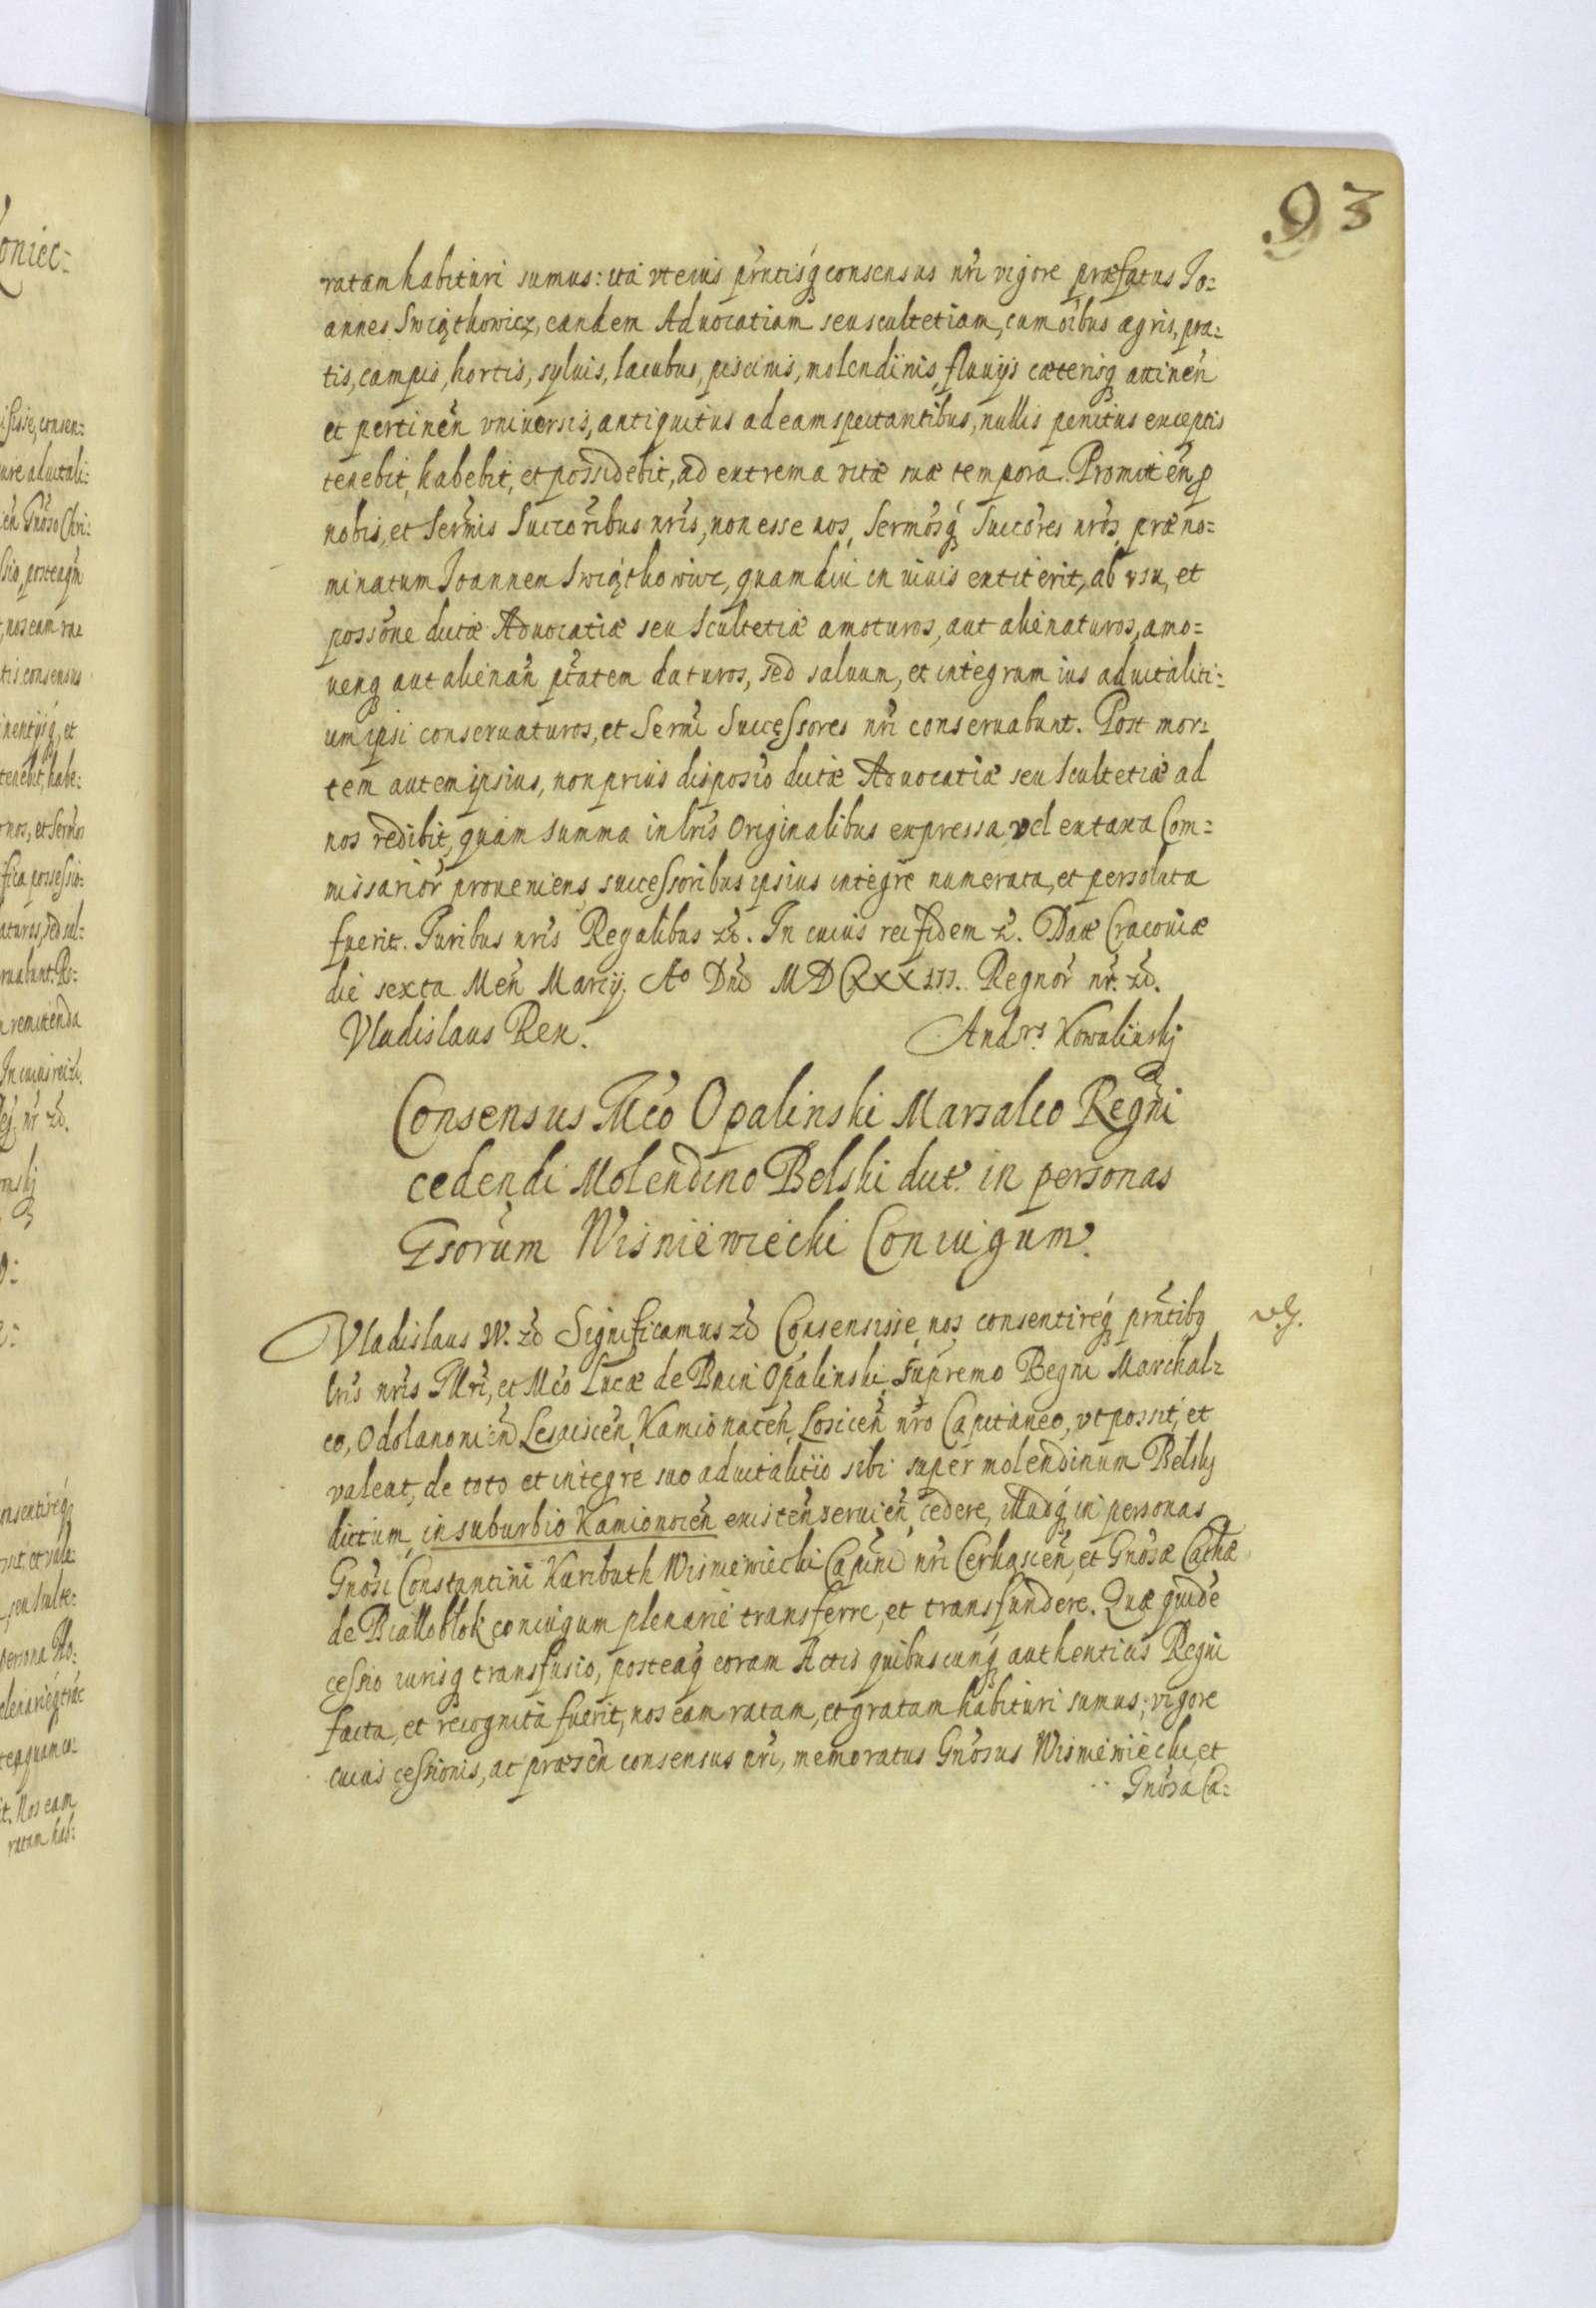 93
ratam habituri sumus: ita vt eius pñtisq́ consensus nři vigore præfatus Jo=
annes Swiątkowicz, eandem Aduocatiam seu scultetiam, cum oĩbus agris, pra=
tis, campis, hortis, syluis, lacubus, piscinis, molendinis, fluuijs cæterisq́ attineñ
et pertineñ vniuersis, antiquitus ad eam spectantibus, nullis penitus exceptis
tenebit, habebit, et possidebit, ad extrema vitæ suæ tempora. Promitteñ p̱
nobis, et Serm̃is Succoribus nřis, non esse nos, Serm̃osq́ Succores nřos, præno=
minatum Joannem Swiątkowicz, quamdiu in viuis extiterit, ab vsu, et
possõne dictæ Aduocatiæ seu Scultetiæ amoturos, aut alienaturos, amo=
uenq aut alienañ ptãtem daturos, sed saluum, et integrum ius aduitaliti=
um ipsi conseruaturos, et Serm̃i Successores nři conseruabunt. Post mor=
tem autem ipsius, non prius disposĩo dictæ Aduocatiæ seu Scultetiæ ad
nos redibit, quam summa in lřis Originalibus expressa, vel ex taxa Com=
missarioř proueniens, successoribus ipsius integre numerata, et persoluta
fuerit. Juribus nřis Regalibus etc. In cuius rei fidem etc. Datæ Cracouiæ
die sexta Meñ Marcij. Ao Dñi MDCXXXIII. Regnoř nř. etc.
Vladislaus Rex. Andrs. Kowalinskj
Consensus Mc̃o Opalinski Marsalco Regñi
cedendi Molendino Belski dict. in personas
Gsorũm Wisniewiecki Coniugum.
Vladislaus IV. etc Significamus etc Consensisse nos consentireq́ pñtibq
lřis nřis Illři, et Mc̃o Lucæ de Bnin Opalinski, Supremo Regni Marchal=
co, Odolanonieñ Lesaisceñ, Kamionaceñ, Losiceñ nřo Capitaneo, vt possit, et
valeat, de toto et integre suo aduitalitio sibi super molendinum Belsky
dictum, in suburbio Kamionoceñ existeñ seruieñ cedere, illudq́ in personas
Gnõsi Constantini Kaributh Wisniewiecki Capñi nři Cerkasceñ, et Gnõsæ Cathæ
de Bialloblok coniugum plenarie transferre, et transfundere. Quæ quidẽ
cessio iurisq transfusio, posteaq̃ coram Actis quibuscunq́ authenticis Regni
facta, et recognita fuerit, nos eam ratam, et gratam habituri sumus; vigore
cuius cessionis, ac præseñ consensus nři, memoratus Gnõsus Wisniewiecki, et
Gnõsa Ca=